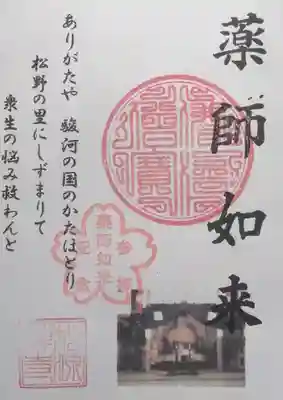 薬師如来
ありがたや 駿河の国のかたほとり
松野の里にしずまりて
衆生の悩み救わんと
薬師如来
参拝
記念